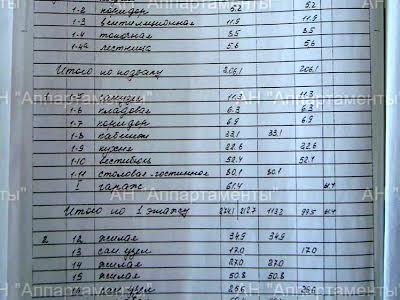 1-2 коридор 5.2 5.2
1-3 вентиляционная 11.9 11.9
1-4 топочная 3.5 3.5
1-4а лестница 5.6 5.6
Итого по подвалу 206,1 206,1
АН "Аппартаменты" АН "Аппартаменты"
1 1-5 санузел 11.3 11.3
1-6 кладовая 6.3 6.3
1-7 коридор 6.9 6.9
1-8 кабинет 33,1 33,1
1-9 кухня 22.6 22.6
1-10 вестибюль 52.4 52.4
1-11 столовая-гостинная 80.1 80.1
I гараж 61.4 61.4
АН "Аппартаменты" АН "Аппартаменты"
Итого по 1 этажу 274.1 212.7 113.2 99.5 61.4
2 12 жилая 34.9 34.9
13 сан узел 17.0 17.0
14 жилая 27.0 27.0
15 жилая 50.8 50.8
16 сан узел 25.6 25.6